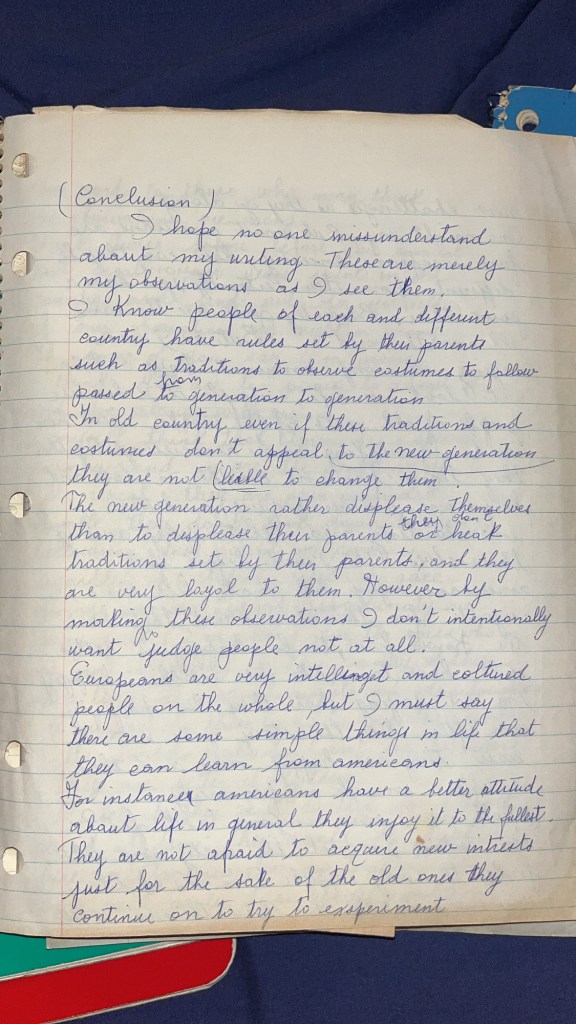 (Conclusion)
I hope no one missunderstand
about my writing. These are merely
my observations as I see them.
I Know people of each and different
country have rules set by their parents
such as traditions to observe costumes to follow
from
passed to generation to generation
In old country even if these traditions and
costumes don't appeal to the new generation
they are not (liable to change them.
The new generation rather displease themselves
they don't
than to displease their parents or
traditions set by their parents, and they
are very loyal to them. However by
making these observations I don't intentionally
to
want judge people not at all.
Europeans are very and coltured
people on the whole, but I must say
there are some simple things in life that
they can learn from americans.
For instance americans have a better attitude
about life in general they injoy it to the fullest.
They are not apraid to acquire new intrests
just for the sake of the old ones they
continue on to try to exsperiment